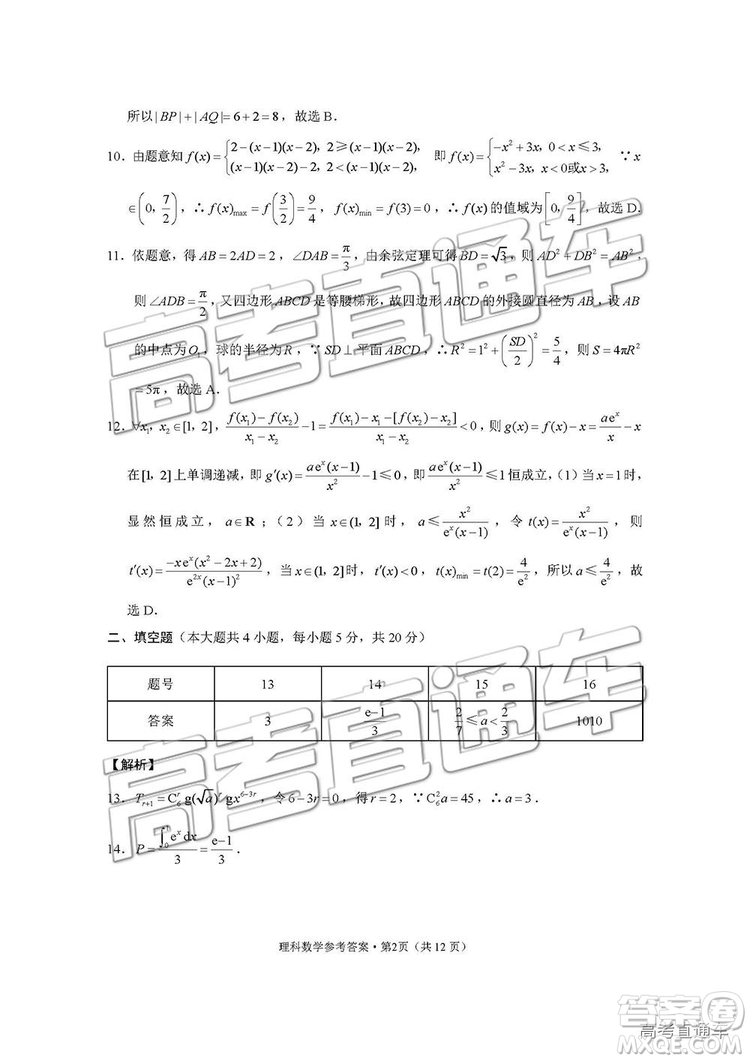 所以|BP|+|AQ|=6+2=8，故选 B．
10．由题意知 f(x)={2-(x-1)(x-2)，2≥(x-1)(x-2)，(x-1)(x-2)-2，2<(x-1)(x-2)， 即 f(x)={-x²+3x，0<x≤3，x²-3x，x<0或x>3， ∵x
∈(0，7/2)，∴f(x)max=f(3/2)=9/4，f(x)min=f(3)=0，∴f(x)的值域为[0，9/4]，故选 D．
11．依题意，得 AB=2AD=2，∠DAB=π/3，由余弦定理可得 BD=√3，则 AD²+DB²=AB²，
则∠ADB=π/2，又四边形 ABCD 是等腰梯形，故四边形 ABCD 的外接圆直径为 AB，设 AB
的中点为 O₁，球的半径为 R，∵SD⊥平面 ABCD，∴R²=1²+(SD/2)²=5/4，则 S=4πR²
=5π，故选 A．
12．∀x₁，x₂∈[1，2]，(f(x₁)-f(x₂))/(x₁-x₂)-1=(f(x₁)-x₁-[f(x₂)-x₂])/(x₁-x₂)<0，则 g(x)=f(x)-x=ae^x/x-x
在[1，2]上单调递减，即 g′(x)=ae^x(x-1)/x²-1≤0，即 ae^x(x-1)/x²≤1恒成立，(1) 当 x=1时，
显然恒成立，a∈R；(2) 当 x∈(1，2]时，a≤x²/(e^x(x-1))，令 t(x)=x²/(e^x(x-1))，则
t′(x)=-xe^x(x²-2x+2)/(e^{2x}(x-1)²)，当 x∈(1，2]时，t′(x)<0，t(x)min=t(2)=4/e²，所以 a≤4/e²，故
选 D．
二、填空题（本大题共 4 小题，每小题 5 分，共 20 分）
题号 13 14 15 16
答案 3 (e-1)/3 2/7≤a<2/3 1010
【解析】
13．T_{r+1}=C₆^r g(√a)^r gx^{6-3r}，令 6-3r=0，得 r=2，∵C₆²a=45，∴a=3．
14．P=∫₀¹e^x dx/3=(e-1)/3．
理科数学参考答案·第2页（共 12 页）
高考直通车
高考直通车
高考直通车
答案圈
高考直通车
MXQE.COM